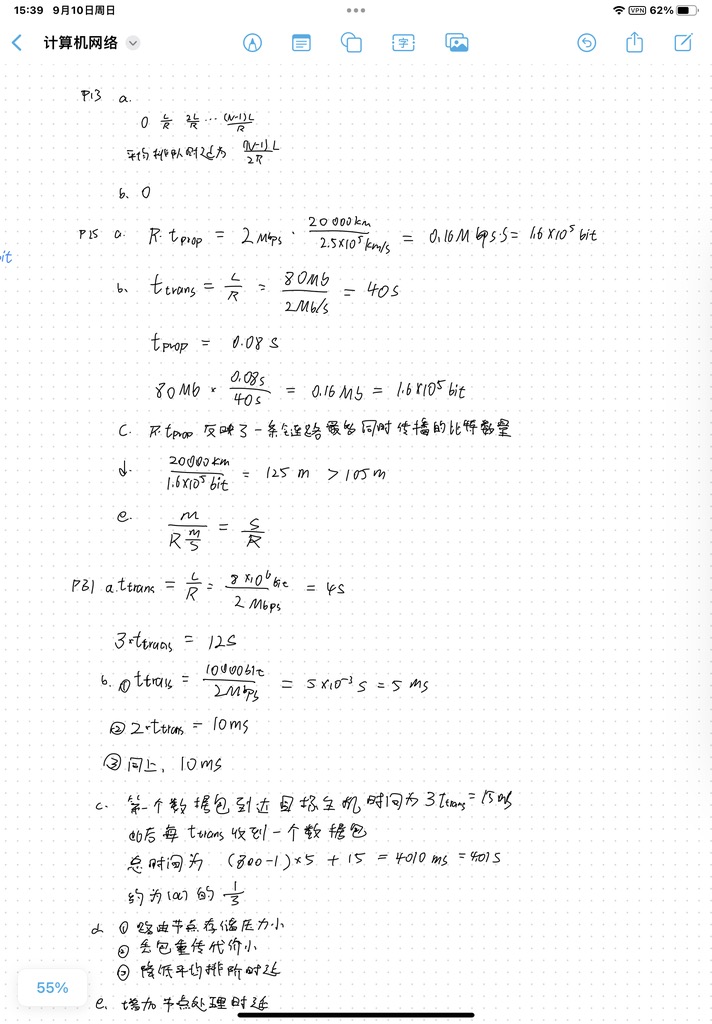 15:39 9月10日周日
VPN 62%
计算机网络
字
P13 a.
0 L/R 2L/R ... (N-1)L/R
平均排队时延为 (N-1)L/2R
b. 0
P15 a. R·tprop = 2Mbps · 20000km/2.5×10⁵km/s = 0.16Mbps·s = 1.6×10⁵bit
it
b. ttrans = L/R = 80Mb/2Mb/s = 40s
tprop = 0.08s
80Mb × 0.08s/40s = 0.16Mb = 1.6×10⁵bit
c. R·tprop 反映了一条链路最多同时传播的比特数量
d. 20000km/1.6×10⁵bit = 125m > 105m
e. m/R m/s = s/R
P31 a. ttrans = L/R = 8×10⁶bit/2Mbps = 4s
3·ttrans = 12s
b. ① ttrans = 10000bit/2Mbps = 5×10⁻³s = 5ms
② 2·ttrans = 10ms
③ 同上, 10ms
c. 第一个数据包到达目标主机时间为3ttrans = 15ms
此后每ttrans收到一个数据包
总时间为 (800-1)×5 + 15 = 4010ms = 4.01s
约为(a)的 1/3
d. ① 路由节点存储压力小
② 丢包重传代价小
③ 降低平均排队时延
55%
e. 增加节点处理时延